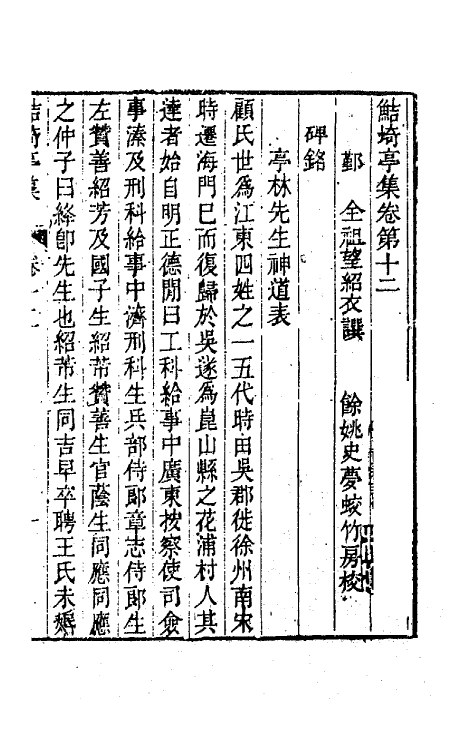 鮚埼亭集卷第十二
鄞　全祖望紹衣譔　　餘姚史夢蛟竹房校
碑銘
亭林先生神道表
顧氏世爲江東四姓之一五代時由吳郡徙徐州南宋
時遷海門巳而復歸於吳遂爲崑山縣之花浦村人其
達者始自明正德閒曰工科給事中廣東按察使司僉
事溱及刑科給事中濟刑科生兵部侍郞章志侍郞生
左贊善紹芳及國子生紹芾贊善生官蔭生同應同應
之仲子曰絳卽先生也紹芾生同吉早卒聘王氏未婚
鮚埼亭集　卷十二　一